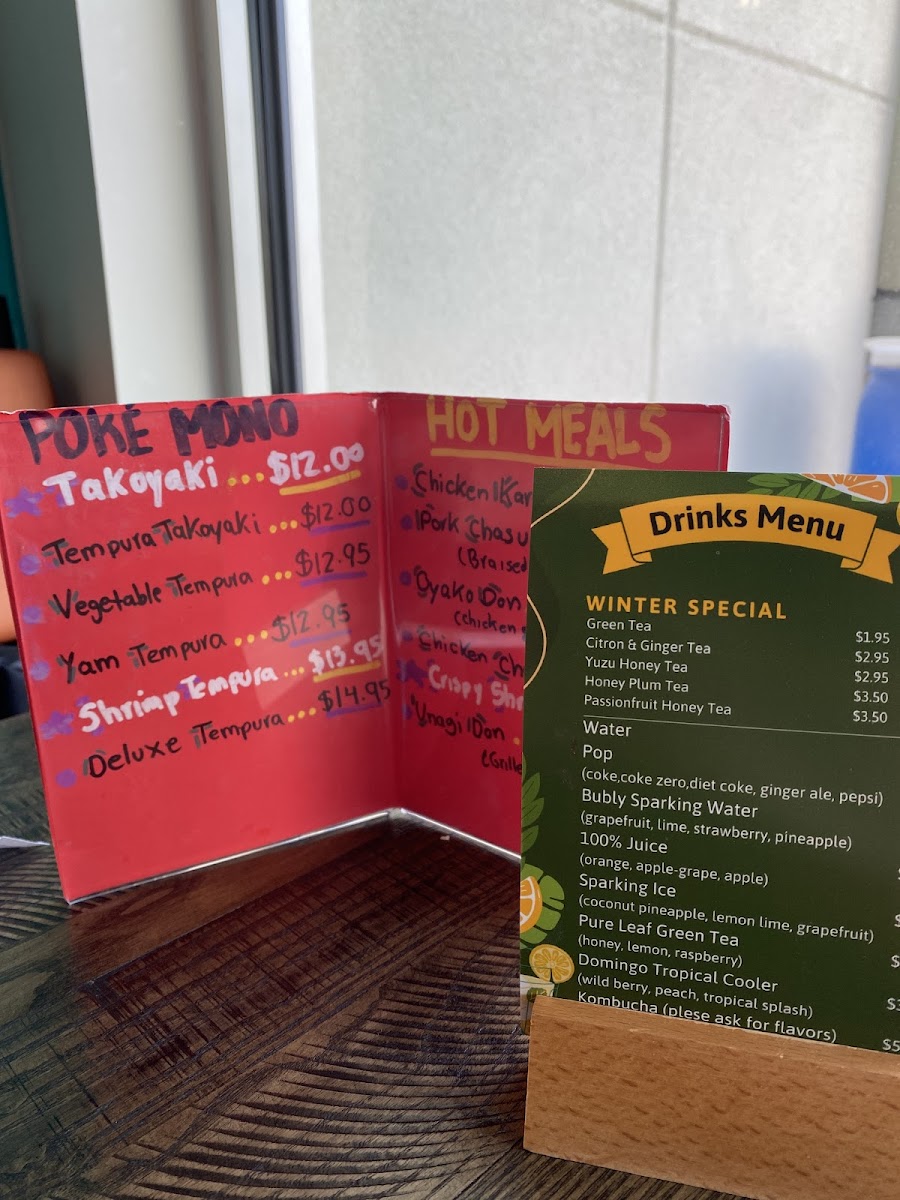 POKE MONO
Takoyaki ... $12.00
Tempura Takoyaki ... $12.00
Vegetable Tempura ... $12.95
Yam Tempura ... $12.95
Shrimp Tempura ... $13.95
Deluxe Tempura ... $14.95
HOT MEALS
Chicken
Pork Chasu
(Braised
Oyako Don
(chicken
Chicken
Crispy
Unagi Don .
Drinks Menu
WINTER SPECIAL
Green Tea $1.95
Citron & Ginger Tea $2.95
Yuzu Honey Tea $2.95
Honey Plum Tea $3.50
Passionfruit Honey Tea $3.50
Water
Pop
(coke,coke zero,diet coke, ginger ale, pepsi)
Bubly Sparking Water
(grapefruit, lime, strawberry, pineapple)
100% Juice
(orange, apple-grape, apple)
Sparking Ice
(coconut pineapple, lemon lime, grapefruit)
Pure Leaf Green Tea
(honey, lemon, raspberry)
Domingo Tropical Cooler
(wild berry, peach, tropical splash)
Kombucha (plese ask for flavors)